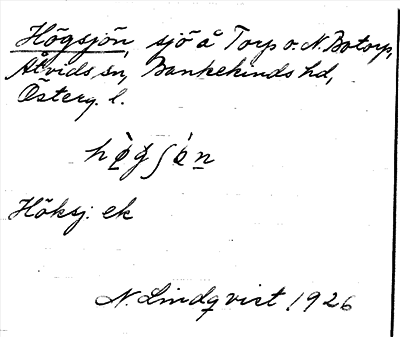 Högsjön, sjö å Torp o. N. Botorp,
Åtvids sn, Bankekinds hd,
Österg. l.
hø̀gʃón
Höksj: ek
N. Lindqvist 1926